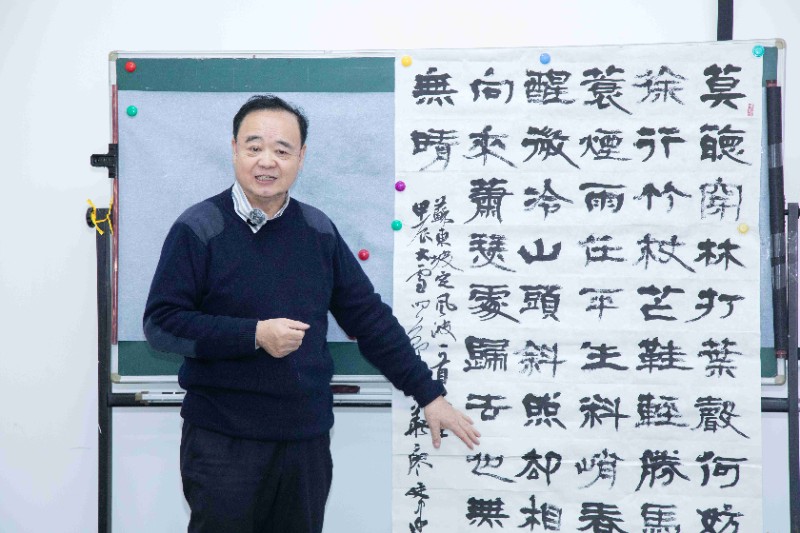 莫聽穿林打葉聲何妨
徐行竹杖芒鞋輕勝馬
蓑煙雨任平生料峭春
醒微冷山頭斜照却相
向來蕭瑟處歸去也無
無晴
蘇東坡定風波一首
甲辰大雪